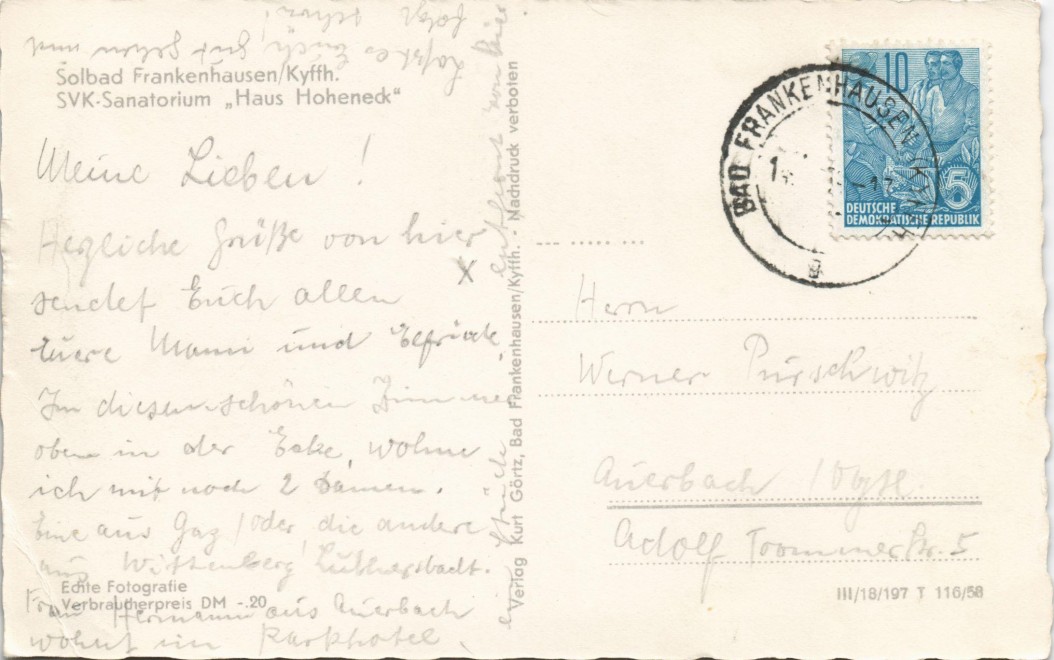 Solbad Frankenhausen/Kyffh.
SVK-Sanatorium „Haus Hoheneck"
Meine Lieben!
Herzliche Grüße von hier
sendet Euch allen
Euere Mammi und Elfriede.
In diesem schönen Zimmer
oben in der Ecke, wohne
ich mit noch 2 Damen.
Eine aus /Oder, die andere
aus Wittenberg Lutherstadt.
Frau Hermann aus Auerbach
wohnt im Parkhotel,
eine Stunde entfernt von hier
Laßt es Euch gut gehen und
folgt schön!
Echte Fotografie
Verbraucherpreis DM -.20
Verlag Kurt Görtz, Bad Frankenhausen/Kyffh. - Nachdruck verboten
BAD FRANKENHAUSEN (KYFFH)
10
5
DEUTSCHE
DEMOKRATISCHE REPUBLIK
Herrn
Werner Purschwitz
Auerbach /Vogtl.
Adolf Str. 5
III/18/197 T 116/58